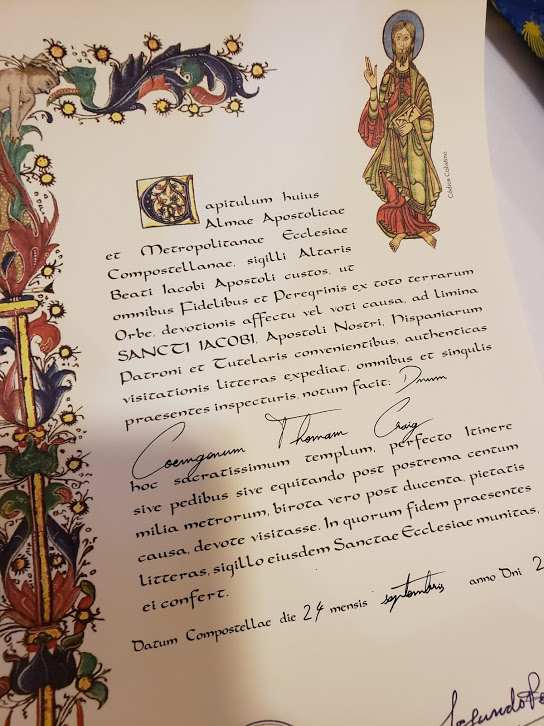 Codice Calixtino
Capitulum huius
Almae Apostolicae
et Metropolitanae Ecclesiae
Compostellanae, sigilli Altaris
Beati Iacobi Apostoli custos, ut
omnibus Fidelibus et Peregrinis ex toto terrarum
Orbe, devotionis affectu vel voti causa, ad limina
SANCTI IACOBI, Apostoli Nostri, Hispaniarum
Patroni et Tutelaris convenientibus, authenticas
visitationis litteras expediat, omnibus et singulis
praesentes inspecturis, notum facit: Dnum
Coemgenum Thomam Craig
hoc sacratissimum templum, perfecto Itinere
sive pedibus sive equitando post postrema centum
milia metrorum, birota vero post ducenta, pietatis
causa, devote visitasse. In quorum fidem praesentes
litteras, sigillo eiusdem Sanctae Ecclesiae munitas,
ei confert.
Datum Compostellae die 24 mensis septembris anno Dni 2